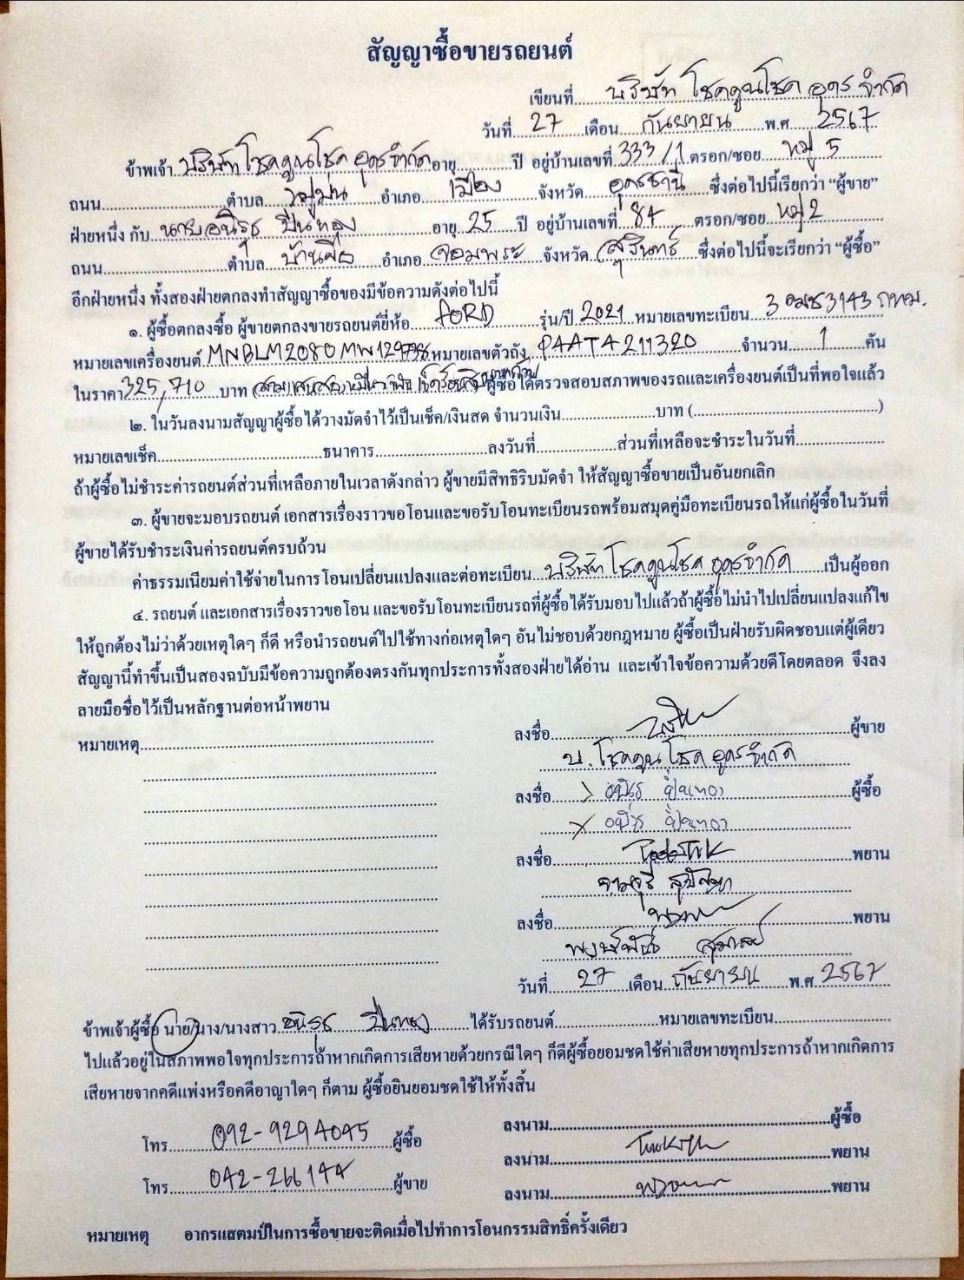 สัญญาซื้อขายรถยนต์
เขียนที่ บริษัท โชคคูนโชค อุดร จำกัด
วันที่ 27 เดือน กันยายน พ.ศ 2567
ข้าพเจ้า บริษัท โชคคูนโชค อุดรจำกัด อายุ ปี อยู่บ้านเลขที่ 333/1 ตรอก/ซอย หมู่ 5
ถนน ตำบล หมูม่น อำเภอ เมือง จังหวัด อุดรธานี ซึ่งต่อไปนี้เรียกว่า “ผู้ขาย”
ฝ่ายหนึ่ง กับ นายอนิรุช ปิ่นทอง อายุ 25 ปี อยู่บ้านเลขที่ 84 ตรอก/ซอย หมู่ 2
ถนน ตำบล บ้านผือ อำเภอ จอมพระ จังหวัด สุรินทร์ ซึ่งต่อไปนี้จะเรียกว่า “ผู้ซื้อ”
อีกฝ่ายหนึ่ง ทั้งสองฝ่ายตกลงทำสัญญาซื้อของมีข้อความดังต่อไปนี้
๑. ผู้ซื้อตกลงซื้อ ผู้ขายตกลงขายรถยนต์ยี่ห้อ FORD รุ่น/ปี 2021 หมายเลขทะเบียน 3 3143 กทม.
หมายเลขเครื่องยนต์ หมายเลขตัวถัง PAATA211320 จำนวน 1 คัน
ในราคา 325,710 บาท ( ผู้ซื้อได้ตรวจสอบสภาพของรถและเครื่องยนต์เป็นที่พอใจแล้ว
๒. ในวันลงนามสัญญาผู้ซื้อได้วางมัดจำไว้เป็นเช็ค/เงินสด จำนวนเงิน บาท ( )
หมายเลขเช็ค ธนาคาร ลงวันที่ ส่วนที่เหลือจะชำระในวันที่
ถ้าผู้ซื้อไม่ชำระค่ารถยนต์ส่วนที่เหลือภายในเวลาดังกล่าว ผู้ขายมีสิทธิริบมัดจำ ให้สัญญาซื้อขายเป็นอันยกเลิก
๓. ผู้ขายจะมอบรถยนต์ เอกสารเรื่องราวขอโอนและขอรับโอนทะเบียนรถพร้อมสมุดคู่มือทะเบียนรถให้แก่ผู้ซื้อในวันที่
ผู้ขายได้รับชำระเงินค่ารถยนต์ครบถ้วน
ค่าธรรมเนียมค่าใช้จ่ายในการโอนเปลี่ยนแปลงและต่อทะเบียน บริษัท โชคคูนโชค อุดรจำกัด เป็นผู้ออก
๔. รถยนต์ และเอกสารเรื่องราวขอโอน และขอรับโอนทะเบียนรถที่ผู้ซื้อได้รับมอบไปแล้วถ้าผู้ซื้อไม่นำไปเปลี่ยนแปลงแก้ไข
ให้ถูกต้องไม่ว่าด้วยเหตุใดๆ ก็ดี หรือนำรถยนต์ไปใช้ทางก่อเหตุใดๆ อันไม่ชอบด้วยกฎหมาย ผู้ซื้อเป็นฝ่ายรับผิดชอบแต่ผู้เดียว
สัญญานี้ทำขึ้นเป็นสองฉบับมีข้อความถูกต้องตรงกันทุกประการทั้งสองฝ่ายได้อ่าน และเข้าใจข้อความด้วยดีโดยตลอด จึงลง
ลายมือชื่อไว้เป็นหลักฐานต่อหน้าพยาน
หมายเหตุ
ลงชื่อ ผู้ขาย
บ. โชคคูนโชค อุดรจำกัด
ลงชื่อ ผู้ซื้อ
ลงชื่อ พยาน
ลงชื่อ พยาน
วันที่ 27 เดือน กันยายน พ.ศ 2567
ข้าพเจ้าผู้ซื้อ นาย/นาง/นางสาว อนิรุช ปิ่นทอง ได้รับรถยนต์ หมายเลขทะเบียน
ไปแล้วอยู่ในสภาพพอใจทุกประการถ้าหากเกิดการเสียหายด้วยกรณีใดๆ ก็ดีผู้ซื้อยอมชดใช้ค่าเสียหายทุกประการถ้าหากเกิดการ
เสียหายจากคดีแพ่งหรือคดีอาญาใดๆ ก็ตาม ผู้ซื้อยินยอมชดใช้ให้ทั้งสิ้น
ลงนาม ผู้ซื้อ
โทร 092-9294095 ผู้ซื้อ
ลงนาม พยาน
โทร 042-266144 ผู้ขาย
ลงนาม พยาน
หมายเหตุ อากรแสตมป์ในการซื้อขายจะติดเมื่อไปทำการโอนกรรมสิทธิ์ครั้งเดียว